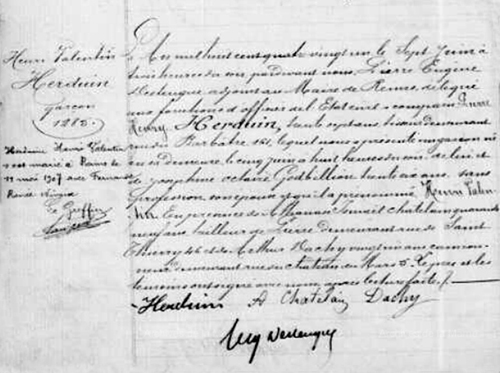 Henri Valentin
Herduin
garçon
1282.
Herduin Henri Valentin
s'est marié à Reims le
11 mai 1907 avec Fernande
Renée
Le Greffier
L'an mil huit cent quatre vingt un le Sept Juin à
heures du soir pardevant nous, Pierre Eugène
Deslengue adjoint au Maire de Reims, délégué
aux fonctions d'officier de l'Etat civil a comparu Pierre
Henry Herduin, trente sept ans, demeurant
rue du Barbâtre 161, lequel nous a présenté un garçon né
en sa demeure le cinq juin à huit heures du soir, de lui et
de Joséphine Octavie Godbillon trente ans, sans
profession son épouse et qu'il a prénommé Henri Valen
tin. En présence de Athanase Chatelain quarante
ans tailleur de Pierre demeurant rue de Saint
Thierry 46 et de Arthur Dachy vingt six ans
demeurant rue du Chateau de Mars 5. Le père et les
témoins ont signé avec nous après lecture faite
Herduin A Chatelain Dachy